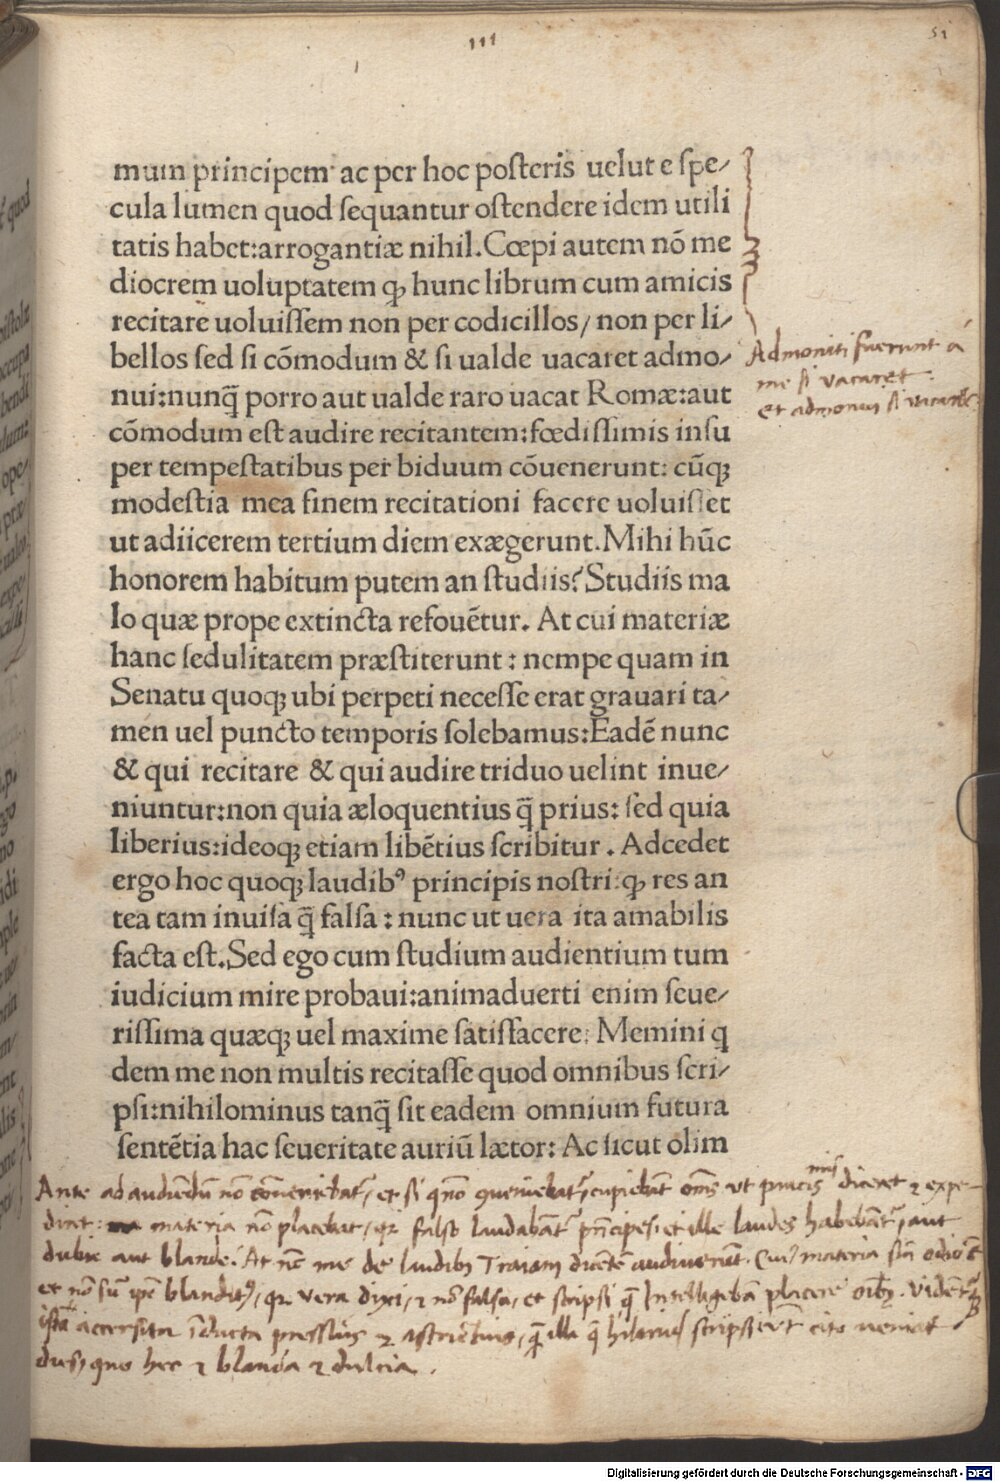 III
51
mum principem ac per hoc poſteris uelut e ſpe/
cula lumen quod ſequantur oſtendere idem utili
tatis habet:arrogantiæ nihil.Cœpi autem nō me
diocrem uoluptatem ꝙ hunc librum cum amicis
recitare uoluiſſem non per codicillos/ non per li/
bellos ſed ſi cōmodum & ſi ualde uacaret admo/
nui:nunq̄ porro aut ualde raro uacat Romæ:aut
cōmodum eſt audire recitantem:fœdiſſimis inſu
per tempeſtatibus per biduum cōuenerunt: cūq;
modeſtia mea finem recitationi facere uoluiſſet
ut adiicerem tertium diem exægerunt.Mihi hūc
honorem habitum putem an ſtudiis? Studiis ma
lo quæ prope extincta refouētur. At cui materiæ
hanc ſedulitatem præſtiterunt : nempe quam in
Senatu quoq; ubi perpeti neceſſe erat grauari ta/
men uel puncto temporis ſolebamus:Eadē nunc
& qui recitare & qui audire triduo uelint inue/
niuntur:non quia æloquentius q̄ prius: ſed quia
liberius:ideoq; etiam libētius ſcribitur . Adcedet
ergo hoc quoq; laudibꝰ principis noſtri:ꝙ res an
tea tam inuiſa q̄ falſa : nunc ut uera ita amabilis
facta eſt.Sed ego cum ſtudium audientium tum
iudicium mire probaui:animaduerti enim ſeue/
riſſima quæq; uel maxime ſatiſfacere: Memini q
dem me non multis recitaſſe quod omnibus ſcri/
pſi:nihilominus tanq̄ ſit eadem omnium futura
ſentētia hac ſeueritate auriū lætor: Ac ſicut olim
Admoniti fuerunt á
me ſi vacaret
et admonui ſi vacaret
Ante ad audiēdū nō et ſi cupiebāt oms ut diceret
materia nō placebat, falſo laudabāt pncipes, et ille laudes habebāt, aut
dubie aut blande. At nc me de laudibꝫ Traiani dicētē audiverūt. materia
et nō vera dixi, nō falſa, et ſcripſi placere
preſſius aſtrictius, illa hilarius ſcripſi cito veniat
dies, quo hec blanda dulcia.
Digitalisierung gefördert durch die Deutsche Forschungsgemeinschaft - DFG